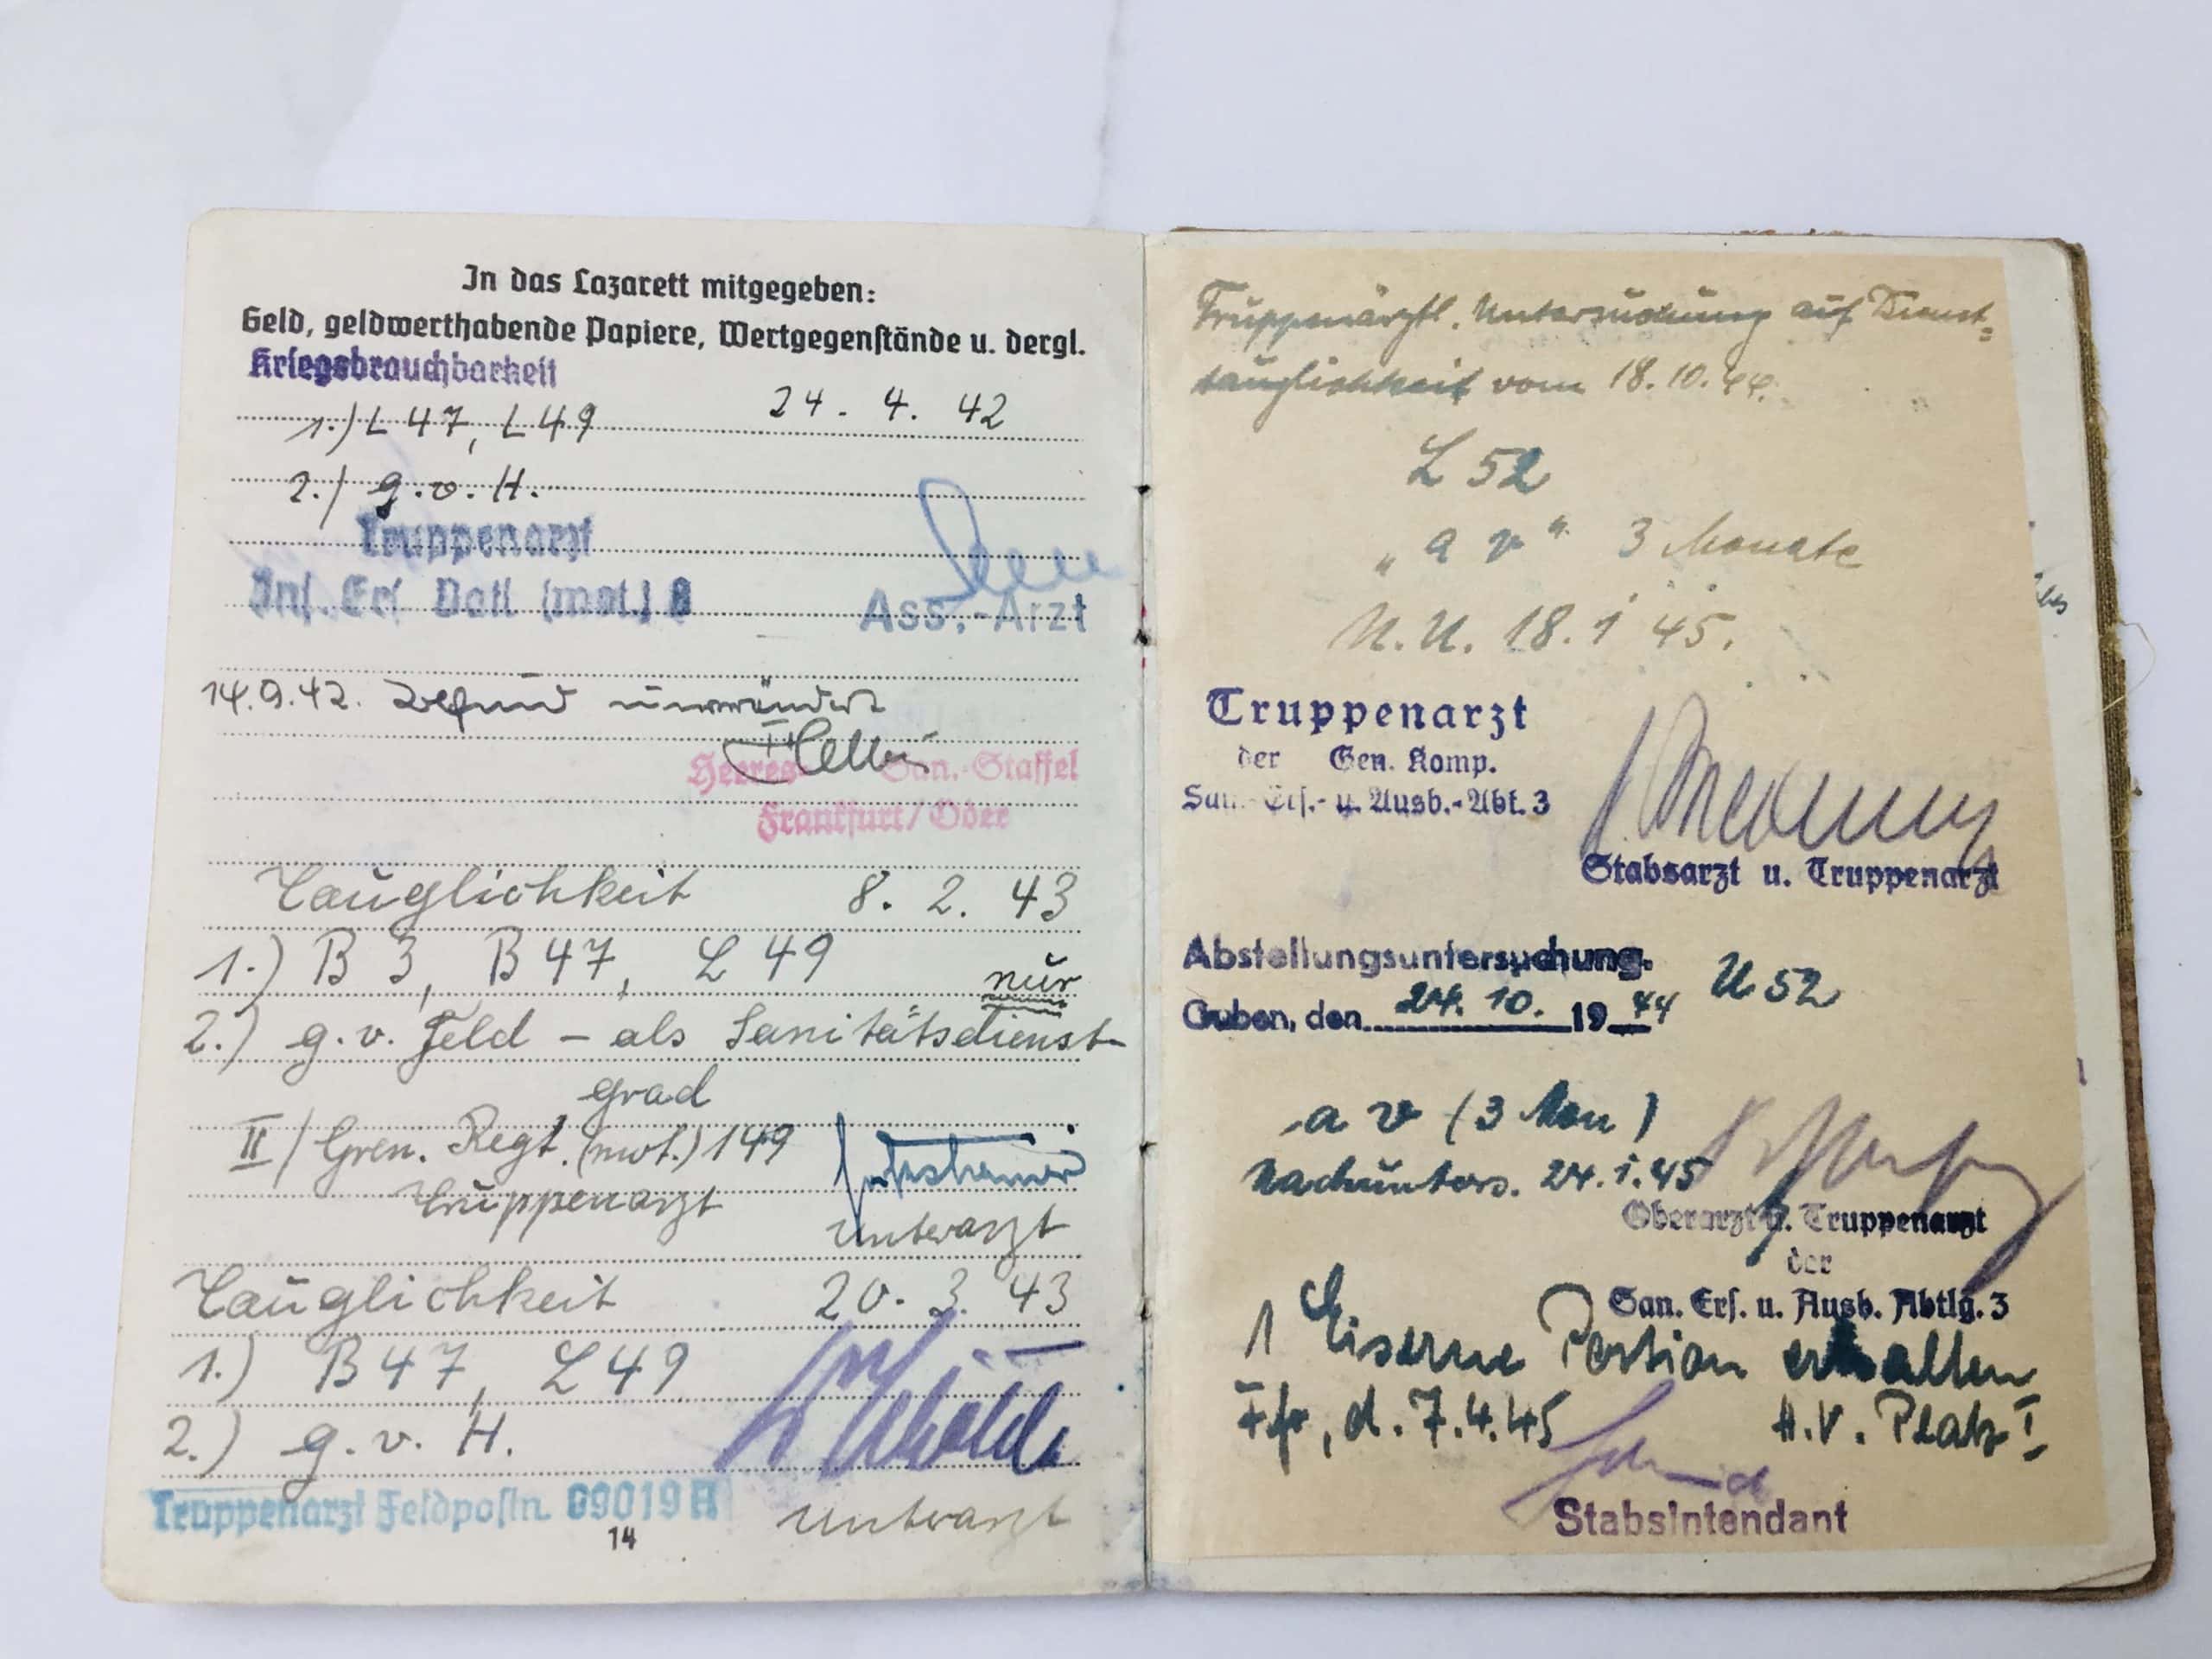 In das Lazarett mitgegeben:
Geld, geldwerthabende Papiere, Wertgegenstände u. dergl.
Kriegsbrauchbarkeit
1.) L 47, L 49 24. 4. 42
2.) g. v. H.
Truppenarzt
Inf. Ers. Batl. (mot.) 8 Ass.-Arzt
14.9.42. Befund unverändert
Heeres- San.-Staffel
Frankfurt/Oder
Tauglichkeit 8. 2. 43
1.) B 3, B 47, L 49 nur
2.) g. v. Feld – als Sanitätsdienst-
grad
II/Gren. Regt. (mot.) 149
Truppenarzt
Unterarzt
Tauglichkeit 20. 3. 43
1.) B 47, L 49
2.) g. v. H.
Truppenarzt Feldpostn. 09019 A
Unterarzt
14
Truppenärztl. Untersuchung auf Dienst-
tauglichkeit vom 18.10.44.
L 52
„a v“ 3 Monate
N. U. 18. 1 45.
Truppenarzt
der Gen. Komp.
San.-Ers.- u. Ausb.-Abt. 3
Stabsarzt u. Truppenarzt
Abstellungsuntersuchung. U 52
Guben, den 24. 10. 1944
a v (3 Mon)
Nachunters. 24.1.45
Oberarzt u. Truppenarzt
der
San. Ers. u. Ausb. Abtlg. 3
1 Eiserne Portion erhalten
Ffr, d. 7.4.45 H.V. Platz I
Stabsintendant